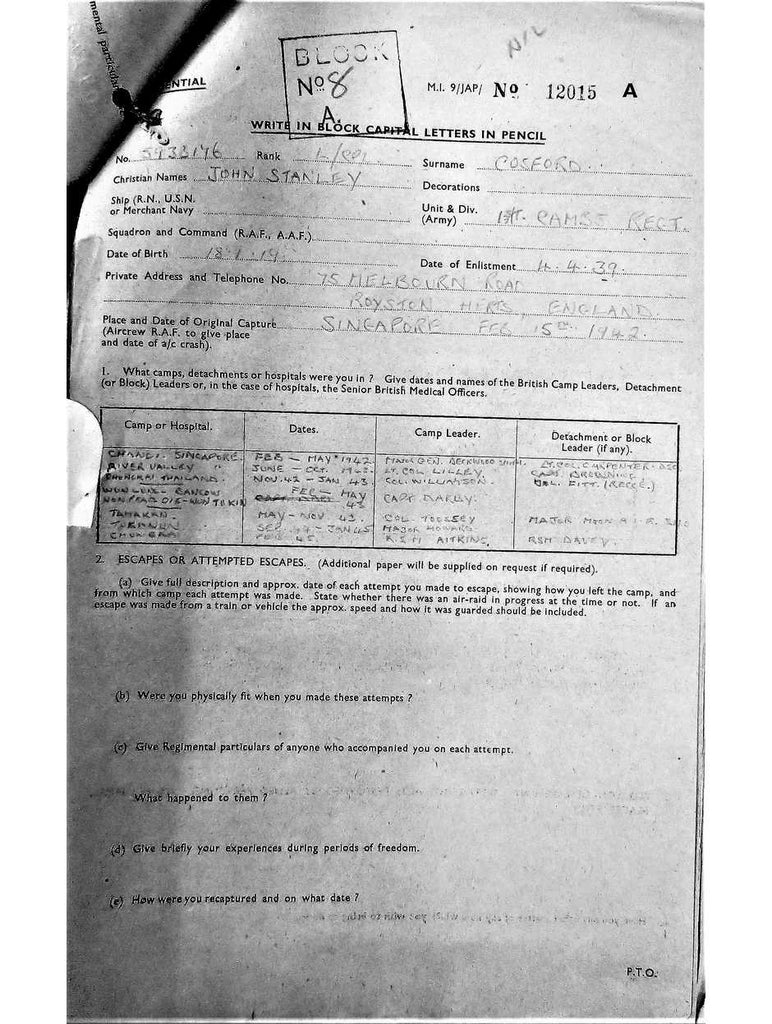 mental particular
NTIAL
BLOCK
No 8
A.
NIL
M.I. 9/JAP/ No 12015 A
WRITE IN BLOCK CAPITAL LETTERS IN PENCIL
No. 5933176 Rank L/CPL Surname COSFORD
Christian Names JOHN STANLEY Decorations
Ship (R.N., U.S.N. or Merchant Navy
Unit & Div. (Army) 1st. CAMBS REGT.
Squadron and Command (R.A.F., A.A.F.)
Date of Birth Date of Enlistment 4.4.39.
Private Address and Telephone No. 75 MELBOURN ROAD
ROYSTON HERTS, ENGLAND
Place and Date of Original Capture SINGAPORE FEB 15th 1942.
(Aircrew R.A.F. to give place
and date of a/c crash).
1. What camps, detachments or hospitals were you in ? Give dates and names of the British Camp Leaders, Detachment
(or Block) Leaders or, in the case of hospitals, the Senior British Medical Officers.
Camp or Hospital. Dates. Camp Leader. Detachment or Block Leader (if any).
CHANGI. SINGAPORE. FEB – MAY 1942 MAJOR GEN. BECKWITH SMITH. LT. COL. CARPENTER.
RIVER VALLEY " JUNE – OCT. LT. COL LILLEY CAPT.
THAILAND. NOV. 42 – JAN 43 COL. WILLIAMSON. COL. FITT. (RECCE.)
FEB – MAY 43 CAPT
TAMAKAN. MAY – NOV 43. COL TOOSEY MAJOR MOON
SEP. 44 – JAN 45 MAJOR HOWARD
FEB 45. R.S.M AITKINS. RSM DAVEY.
2. ESCAPES OR ATTEMPTED ESCAPES. (Additional paper will be supplied on request if required).
(a) Give full description and approx. date of each attempt you made to escape, showing how you left the camp, and
from which camp each attempt was made. State whether there was an air-raid in progress at the time or not. If an
escape was made from a train or vehicle the approx. speed and how it was guarded should be included.
(b) Were you physically fit when you made these attempts ?
(c) Give Regimental particulars of anyone who accompanied you on each attempt.
What happened to them ?
(d) Give briefly your experiences during periods of freedom.
(e) How were you recaptured and on what date ?
P.T.O.